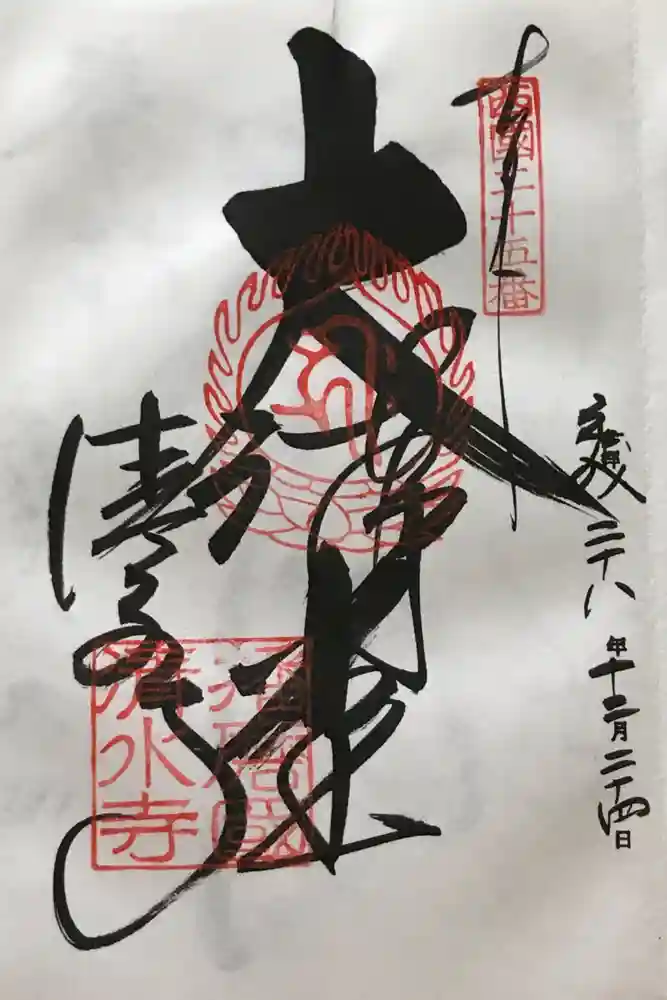 西國二十五番
平成二十八年十二月二十四日
大
清水寺
播磨國
清水寺